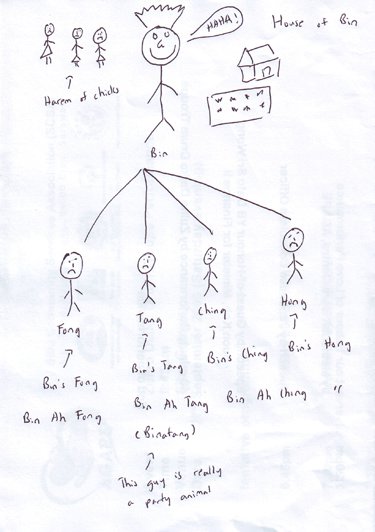 HAHA!
House of Bin
Harem of chicks
Bin
Fong
Tang
Ching
Hong
Bin's Fong
Bin's Tang
Bin's Ching
Bin's Hong
Bin Ah Fong
Bin Ah Tang
Bin Ah Ching
"
(Binatang)
This guy is really
a party animal